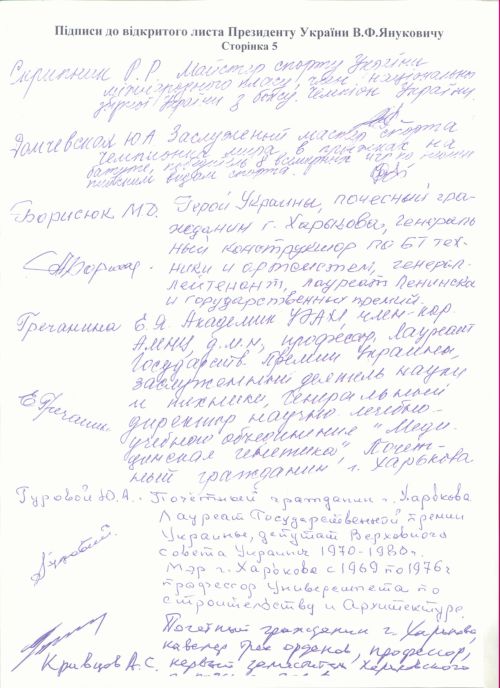 Підписи до відкритого листа Президенту України В.Ф.Януковичу
Сторінка 5
Скрипник Р.Р. Майстер спорту України
міжнародного класу, член національної
збірної України з боксу. Чемпіон України.
Домчевская Ю.А. Заслуженый мастер спорта
Чемпионка мира в прыжках на
батуте, победитель 8 всемирных игр по неолим
пийским видам спорта.
Борисюк М.Д. Герой Украины, почесный гра-
жданин г. Харькова, генераль
ный конструктор по БТ тех-
нике и артсистем, генерал-
лейтенант, лауреат Ленинской
и государственных премий.
Гречанина Е.Я. Академик УЭАН, член-кор.
АМНУ, д.м.н., профессор, Лауреат
Государств. Премии Украины,
заслуженный деятель науки
и техники, Генеральный
директор научно-лечебно-
учебного объединения "Меди-
цинская генетика", Почет-
ный гражданин г. Харькова
Гуровой Ю.А. - Почётный гражданин г. Харькова
Лауреат Государственной премии
Украины, депутат Верховного
Совета Украины 1970-1980г.
Мэр г. Харькова с 1969 по 1976г
профессор Университета по
строительству и Архитектуре.
Почетный гражданин г. Харькова,
кавалер трех орденов, профессор,
Кривцов А.С. первый заместитель Харьковского